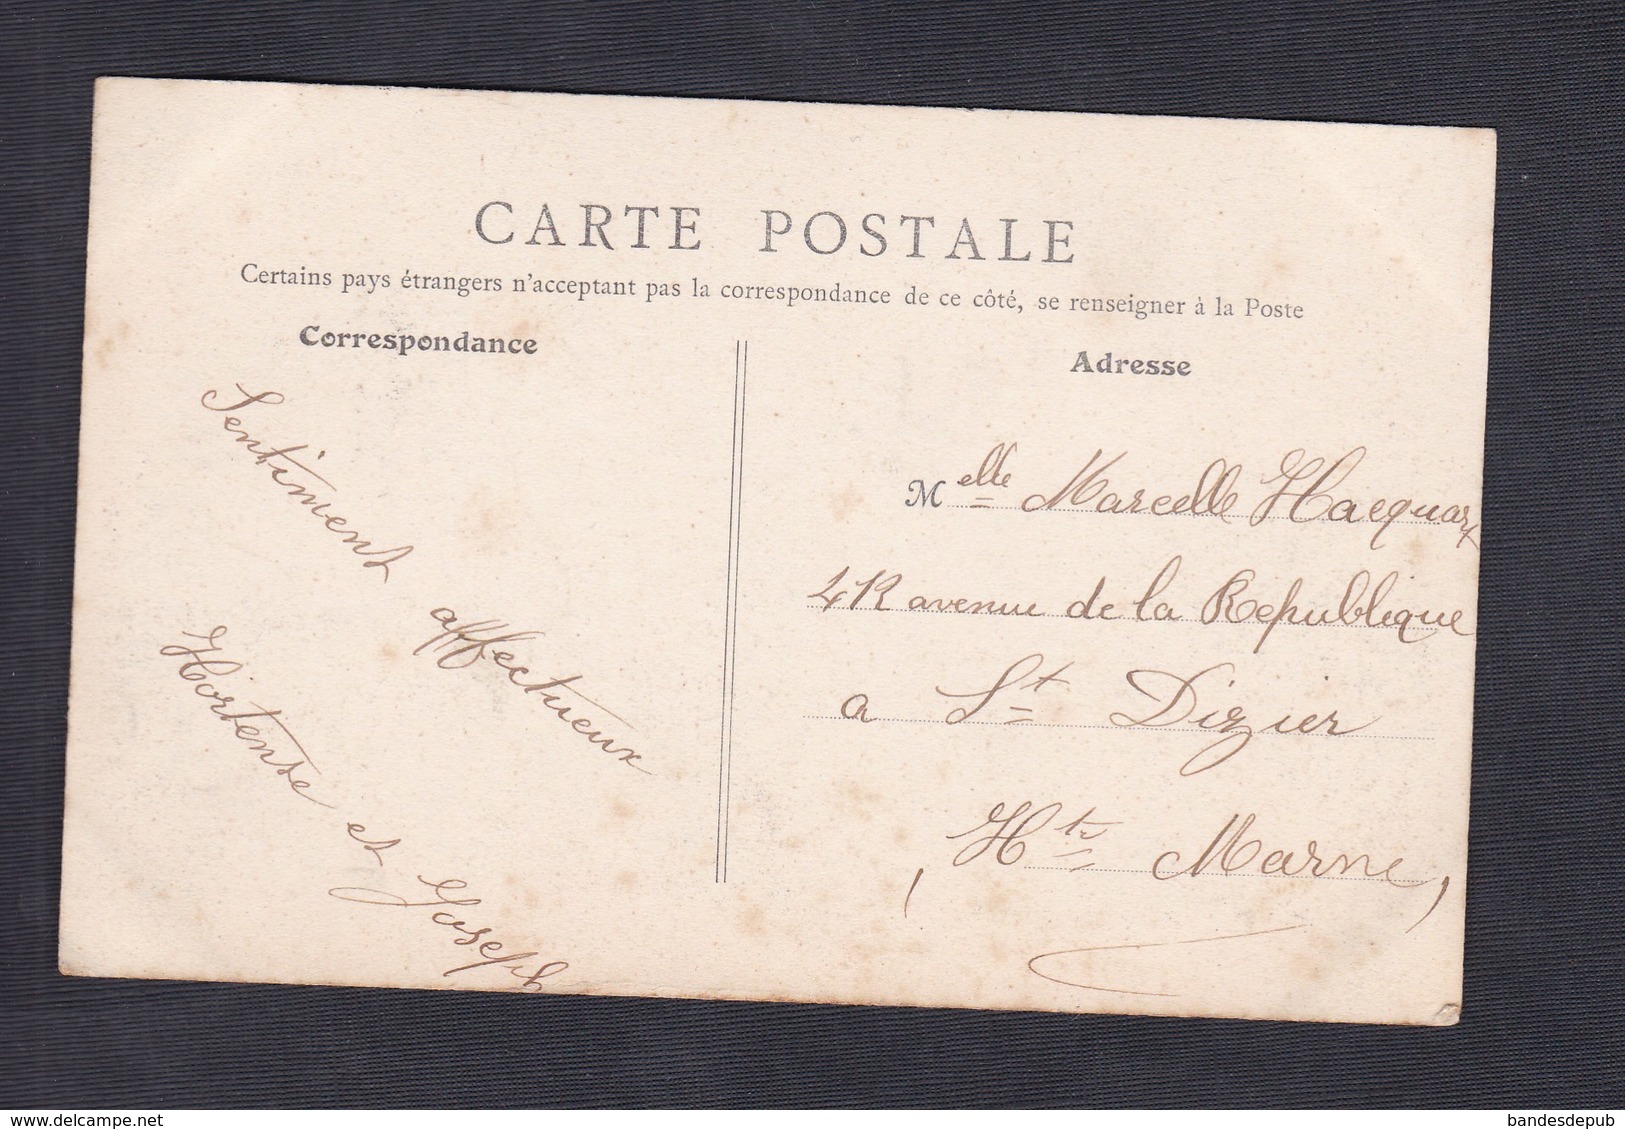 CARTE POSTALE
Certains pays étrangers n'acceptant pas la correspondance de ce côté, se renseigner à la Poste
Correspondance
Sentiment affectueux
Hortense et Joseph
Adresse
Melle Marcelle
avenue de la Republique
a St Dizier
(Hte Marne)
delcampe.net
bandesdepub